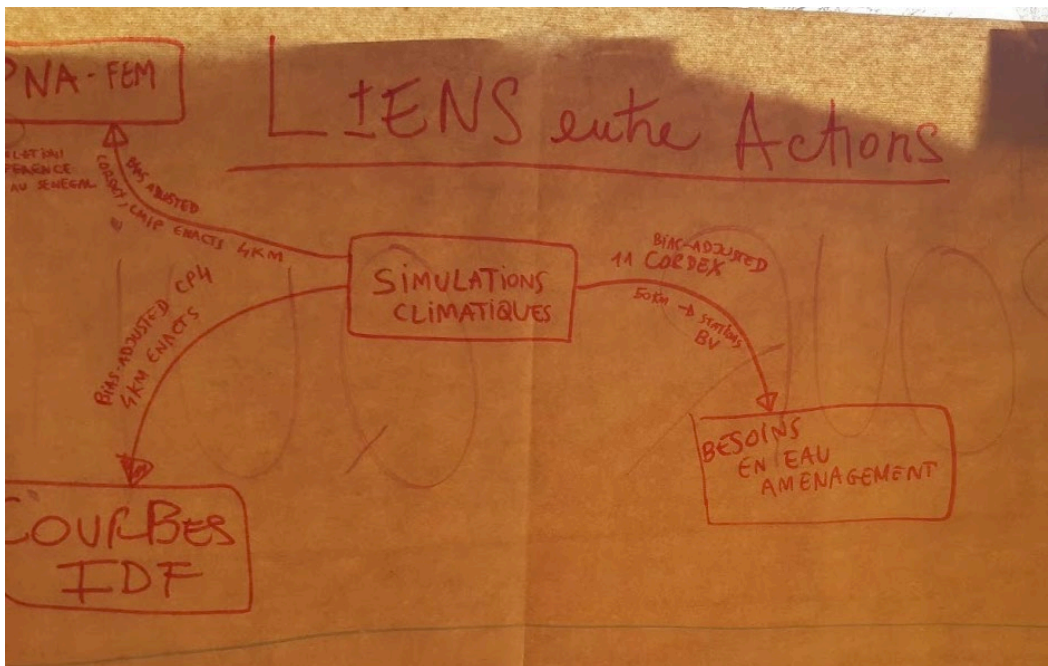 PNA-FEM
LIENS entre Actions
AU SENEGAL
BIAS ADJUSTED
CORDEX, CMIP ENACTS 4KM
SIMULATIONS
CLIMATIQUES
BIAS-ADJUSTED
11 CORDEX
50KM → STATIONS
BV
BIAS-ADJUSTED CP4
4KM ENACTS
BESOINS
EN EAU
AMENAGEMENT
COURBES
IDF